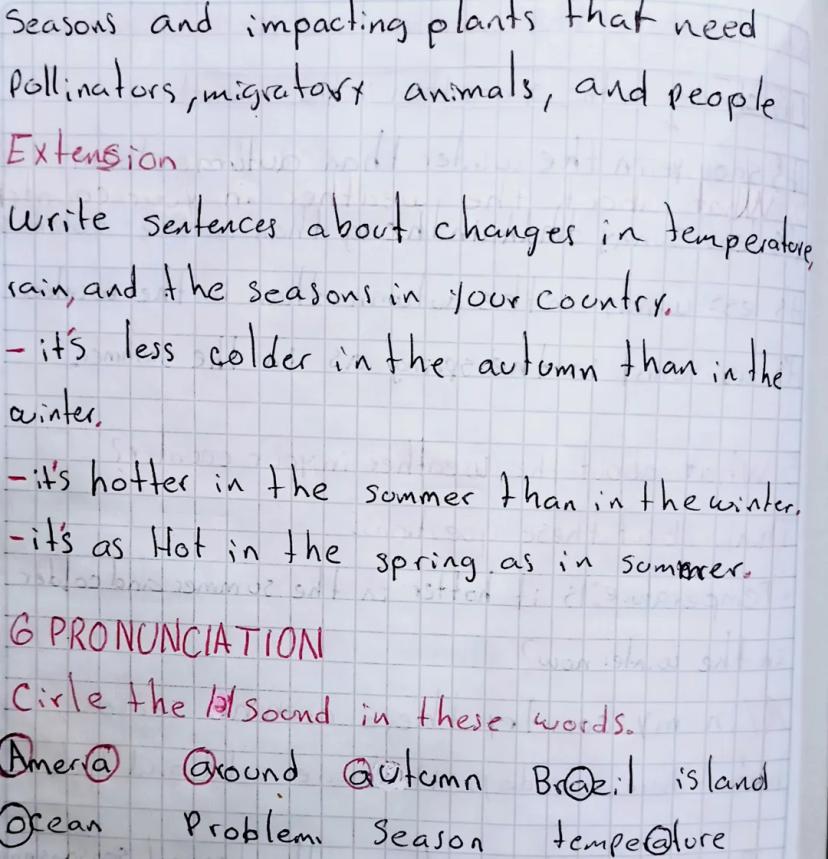 Seasons and impacting plants that need
Pollinators, migratory animals, and people
Extension
Write sentences about changes in temperature,
rain, and the seasons in your country.
- it's less colder in the autumn than in the
winter.
- it's hotter in the summer than in the winter.
- it's as Hot in the spring as in summer.
6 PRONUNCIATION
Cirle the /ə/ sound in these words.
Ameria around autumn Brazil island
Ocean Problem Season tempeature